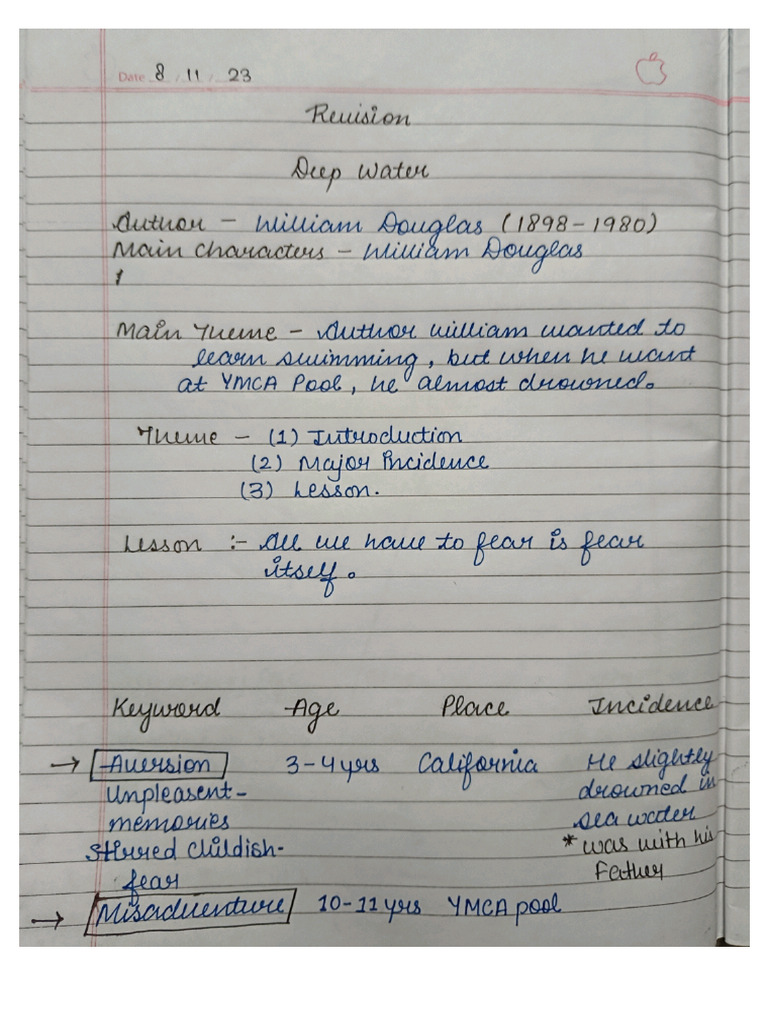 Date 8 / 11 / 23
Revision
Deep Water
Author – William Douglas (1898–1980)
Main Characters – William Douglas
Main Theme – Author william wanted to
learn swimming, but when he want
at YMCA Pool, he almost drowned.
Theme – (1) Introduction
(2) Major incidence
(3) Lesson.
Lesson :- All we have to fear is fear
itself.
Keyword Age Place Incidence
→ Aversion 3-4 yrs California He slightly
Unpleasent- drowned in
memories sea water
Stirred Childish- * was with his
fear Father
→ Misadventure 10-11 yrs YMCA pool